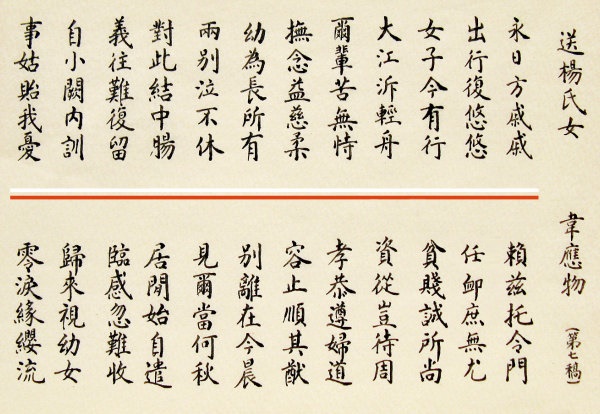 送楊氏女
韋應物
(第七稿)
永日方戚戚
出行復悠悠
女子今有行
大江泝輕舟
爾輩苦無恃
撫念益慈柔
幼為長所有
兩別泣不休
對此結中腸
義往難復留
自小闕內訓
事姑貽我憂
賴茲托令門
任卹庶無尤
貧賤誠所尚
資從豈待周
孝恭遵婦道
容止順其猷
別離在今晨
見爾當何秋
居閒始自遣
臨感忽難收
歸來視幼女
零淚緣纓流